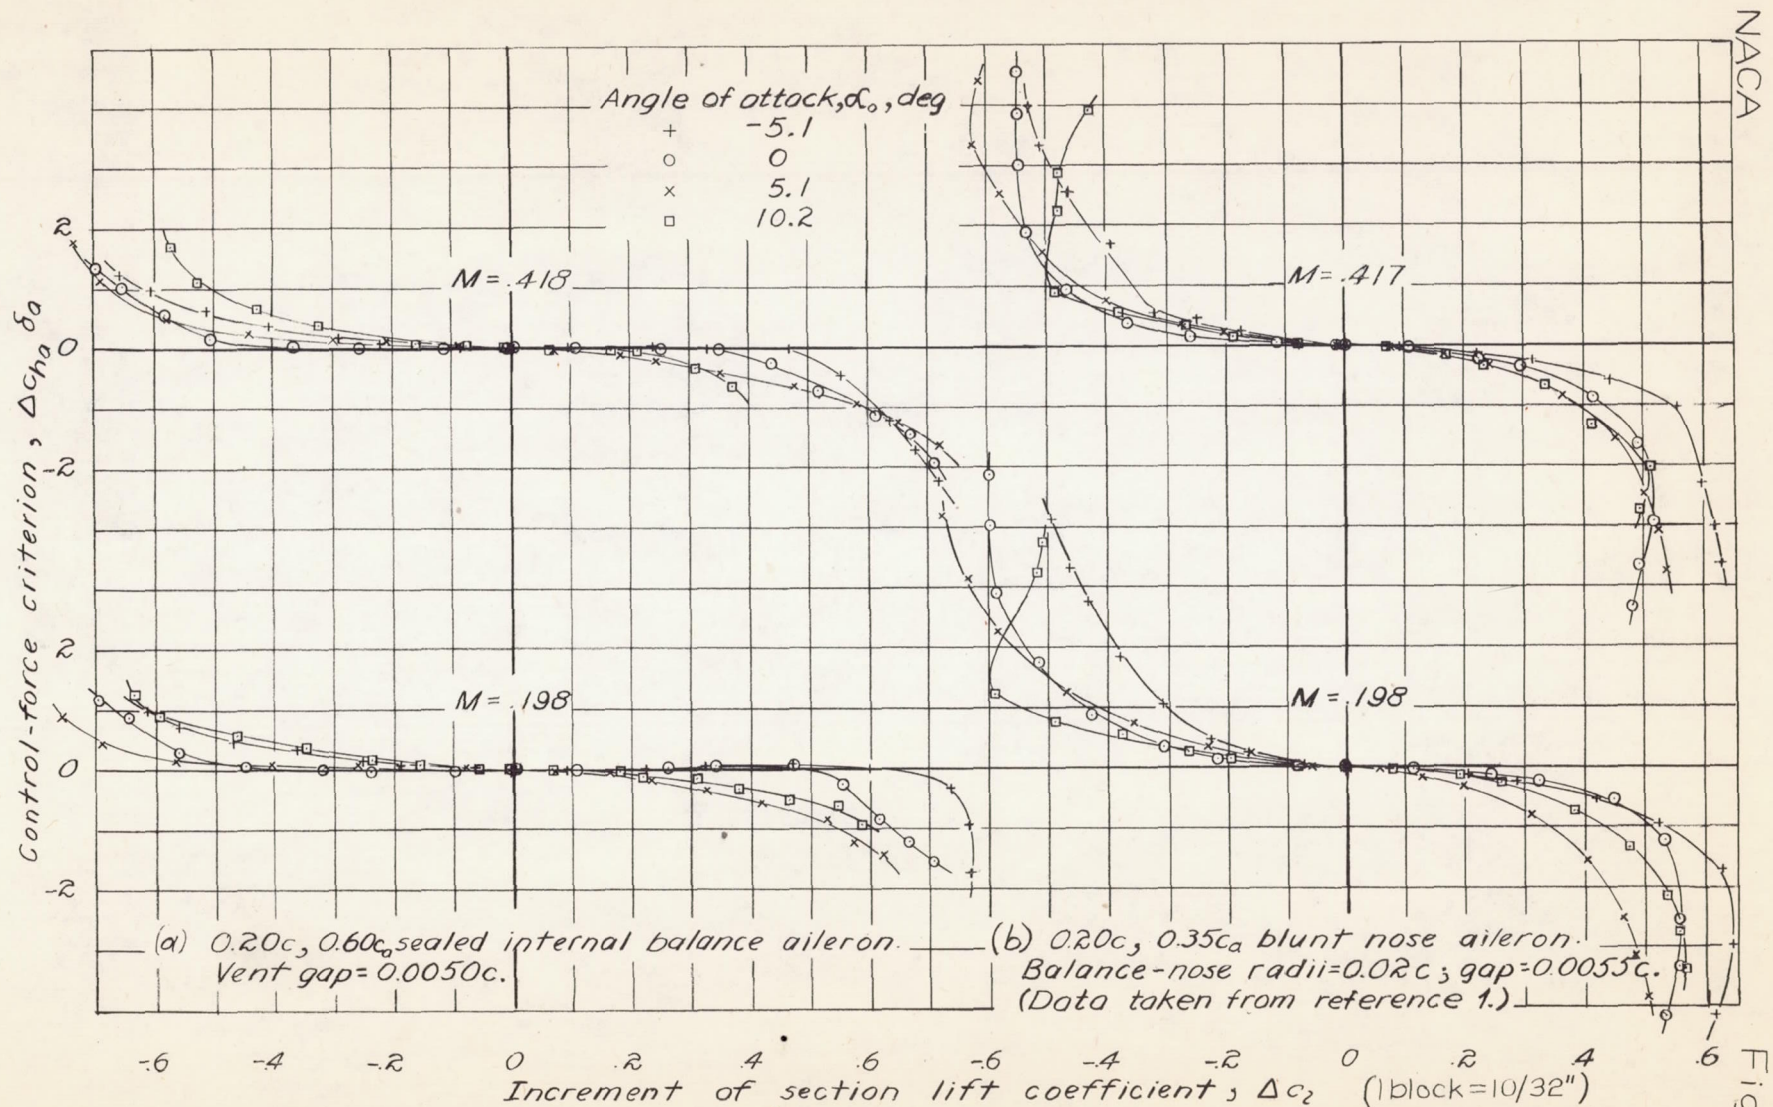 NACA
Angle of attack, α₀, deg
+ -5.1
○ 0
× 5.1
□ 10.2
M = .418
M = .417
2
0
-2
M = .198
M = .198
2
0
-2
Control-force criterion, Δcha δa
(a) 0.20c, 0.60ca sealed internal balance aileron.
Vent gap = 0.0050c.
(b) 0.20c, 0.35ca blunt nose aileron.
Balance-nose radii=0.02c; gap=0.0055c.
(Data taken from reference 1.)
-.6 -.4 -.2 0 .2 .4 .6 -.6 -.4 -.2 0 .2 .4 .6
Increment of section lift coefficient, Δcl (1 block=10/32")
Fig